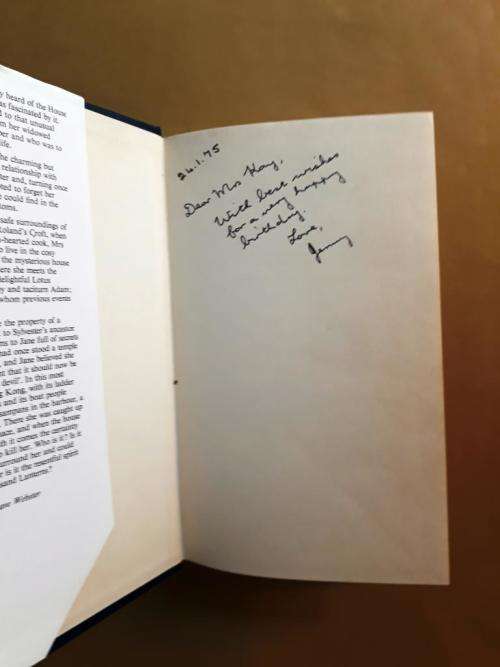 y heard of the House
as fascinated by it.
d to that unusual
m her widowed
per and who was to
life.
he charming but
relationship with
ter and, turning once
oted to forget her
e could find in the
ooms.
safe surroundings of
Roland's Croft, when
-hearted cook, Mrs
o live in the cosy
the mysterious house
ere she meets the
elightful Lotus
y and taciturn Adam;
whom previous events
e the property of a
to Sylvester's ancestor
ms to Jane full of secrets
had once stood a temple
, and Jane believed she
nt that it should now be
devil'. In this most
g Kong, with its ladder
and its boat people
sampans in the harbour, a
. There she was caught up
nace, and when the house
th it comes the certainty
o kill her. Who is it? Is it
surround her and could
r is it the resentful spirit
sand Lanterns?
ane Webster
24.1.75
Dear Mrs Kay,
With best wishes
for a very happy
birthday.
Love,
Jenny